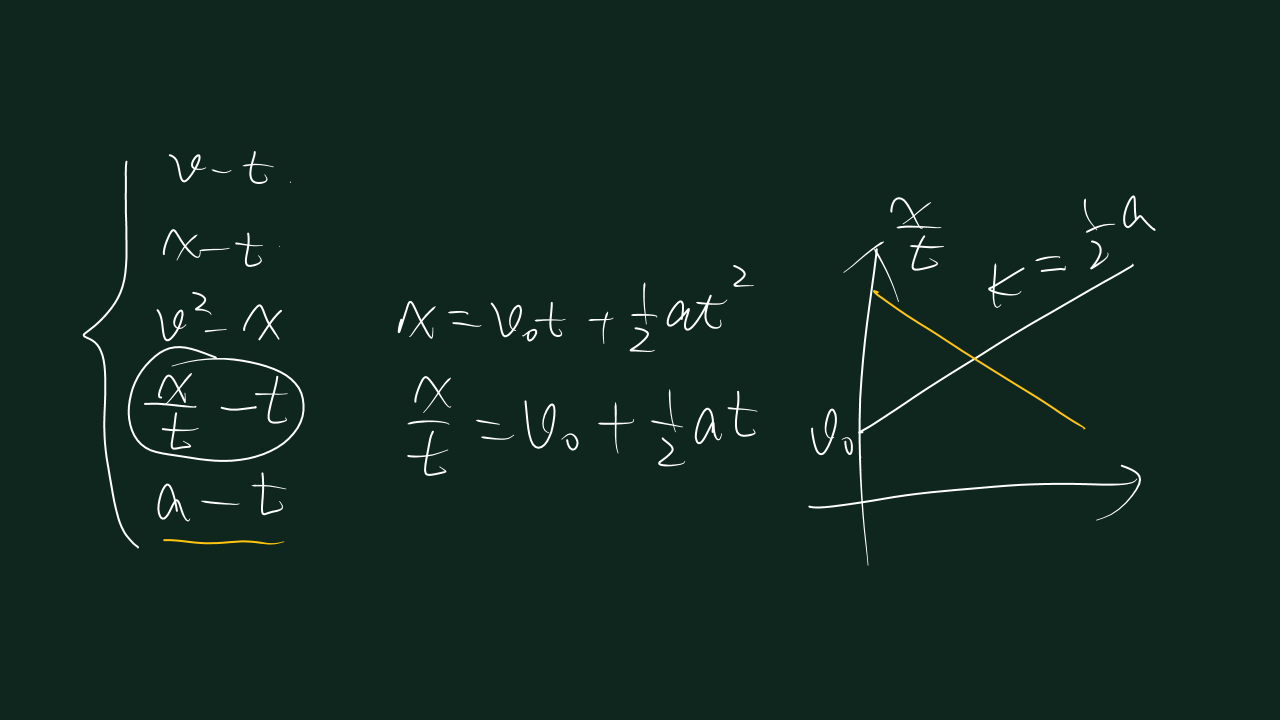 v-t
x-t
v²-x
x/t - t
a-t
x = v₀t + ½at²
x/t = v₀ + ½at
x/t
k = ½a
v₀